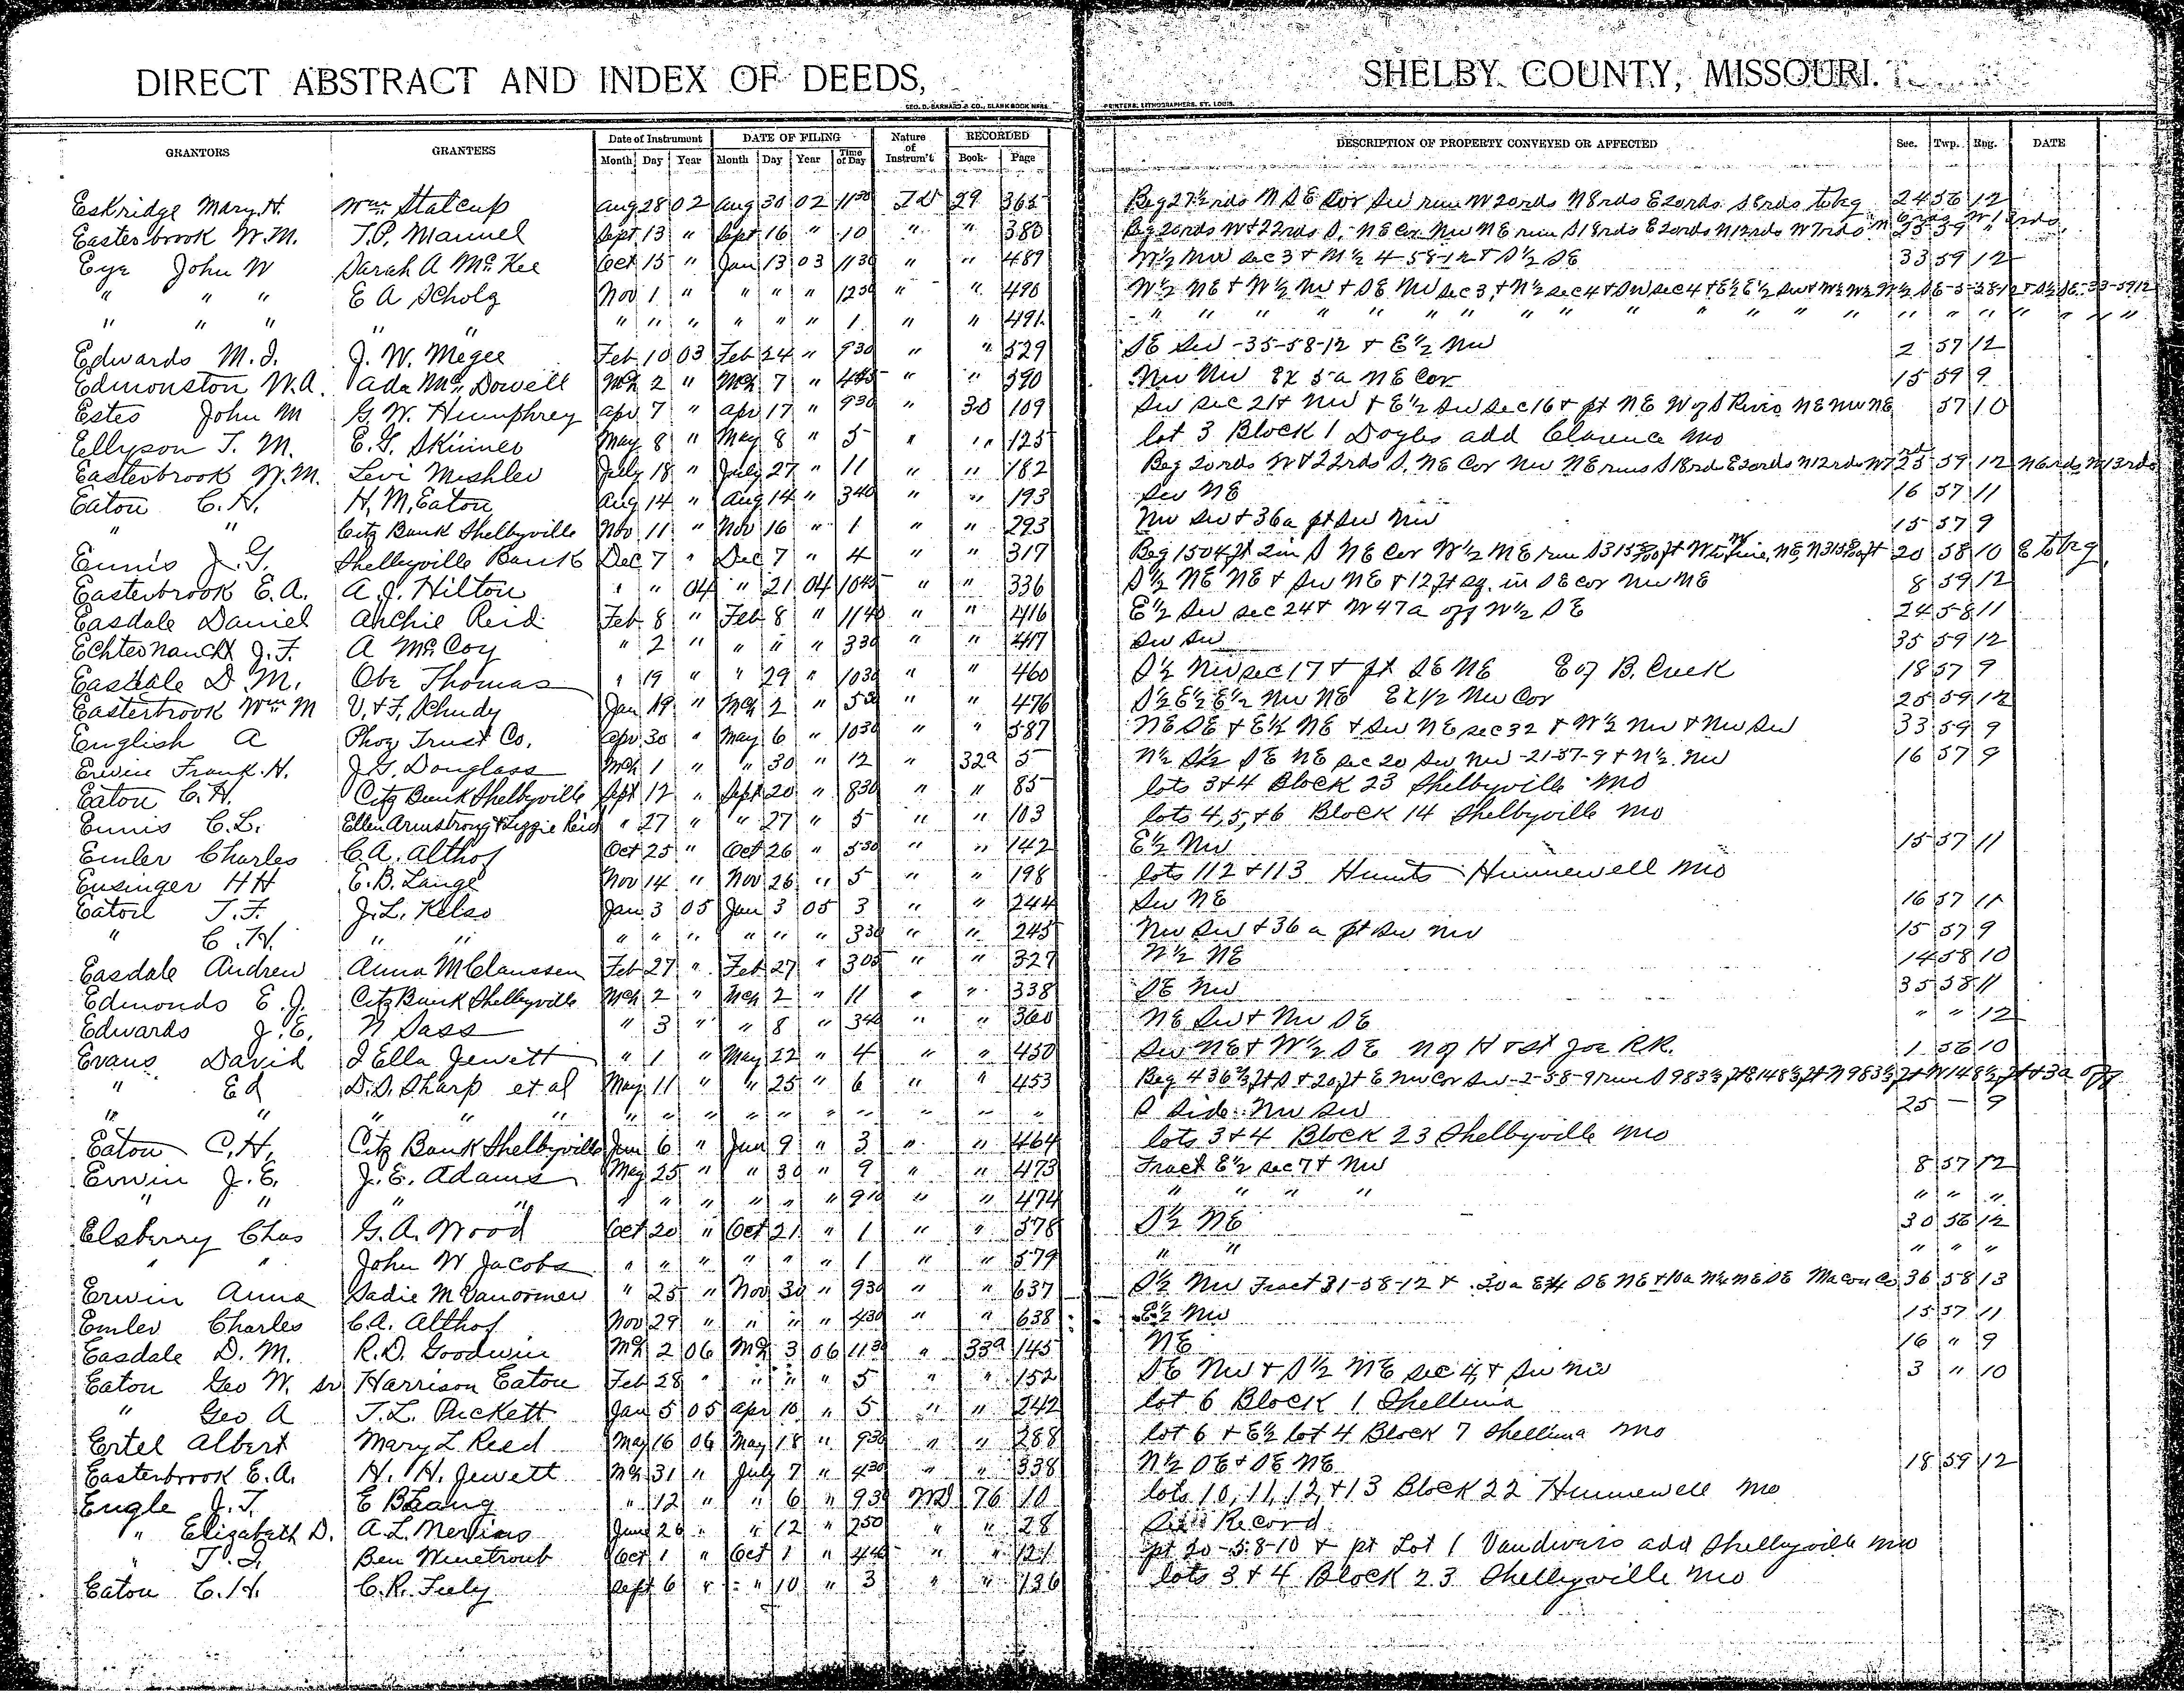 DIRECT ABSTRACT AND INDEX OF DEEDS, SHELBY COUNTY, MISSOURI.
GEO. D. BARNARD & CO., BLANK BOOK MFRS. PRINTERS, LITHOGRAPHERS, ST. LOUIS.
GRANTORS GRANTEES Date of Instrument DATE OF FILING Nature of Instrum't RECORDED DESCRIPTION OF PROPERTY CONVEYED OR AFFECTED Sec. Twp. Rng. DATE
Month Day Year Month Day Year Time of Day Book Page
Eskridge Mary H. Wm Statcup Aug 28 02 Aug 30 02 11 30 29 365 Beg 27½ rds N SE Cor Sw run W 20rds N 8rds E 20rds S 8rds to beg 24 56 12
Easterbrook W.M. T.P. Manuel Sept 13 " Sept 16 " 10 " " 380 Beg 20rds W + 22rds S. NE Cor Nw NE run S 18rds E 20rds N 12rds W 7rds N 6rds W 13rds 25 59 "
Eye John W Sarah A McKee Oct 15 " Jan 13 03 11 30 " " 489 W½ Nw sec 3 + N½ 4-58-12 + S½ SE 33 59 12
" " " E A Scholz Nov 1 " " " " 12 30 " " 490 W½ NE + W½ Nw + SE Nw sec 3, + N½ sec 4 + Sw sec 4 + E½ E½ Sw + W½ W½ N½ SE-5-58-12 + S½ SE-33-59-12
" " " " " " " " " " " 1 " " 491 " " " " " " " " " " " " " " " " " " " "
Edwards M.J. J. W. Megee Feb 10 03 Feb 24 " 9 30 " " 529 SE Sw -35-58-12 + E½ Nw 2 57 12
Edmonston W.A. Ada McDowell Mch 2 " Mch 7 " 4 45 " " 590 Nw Nw Ex 5a NE Cor 15 59 9
Estes John M G. W. Humphrey Apr 7 " Apr 17 " 9 30 " 30 109 Sw sec 21 + Nw + E½ Sw sec 16 + pt NE W of S River NE NW NE 57 10
Ellyson T. M. E. G. Skinner May 8 " May 8 " 5 " " 125 lot 3 Block 1 Doyles add Clarence Mo
Easterbrook W.M. Levi Mishler July 18 " July 27 " 11 " " 182 Beg 20rds W + 22rds S. NE Cor Nw NE runs S 18rds E 20rds N 12rds W 7 rds 25 59 12 N 6rds W 13rds
Eaton C. H. H. M. Eaton Aug 14 " Aug 14 " 3 40 " " 193 Sw NE 16 57 11
" " Citz Bank Shelbyville Nov 11 " Nov 16 " 1 " " 293 Nw Sw + 36a pt Sw Nw 15 57 9
Ennis J. G. Shelbyville Bank Dec 7 " Dec 7 " 4 " " 317 Beg 1504 ft 2in S NE Cor W½ NE run S 315 ft W to line, NE, N 315 ft 20 58 10 E to beg
Easterbrook E. A. A. J. Hilton " " 04 " 21 04 10 45 " " 336 S½ NE NE + Sw NE + 12 ft sq. in SE cor Nw NE 8 59 12
Easdale Daniel Archie Reid Feb 8 " Feb 8 " 11 40 " " 416 E½ Sw sec 24 + W 47a off W½ SE 24 58 11
Echternacht J. F. A McCoy " 2 " " " " 3 30 " " 417 Sw Sw 35 59 12
Easdale D. M. Obe Thomas " 19 " " 29 " 10 30 " " 460 S½ Nw sec 17 + pt SE NE E of B. Creek 18 57 9
Easterbrook Wm M V. + F. Schudy Jan 19 " Mch 2 " 5 30 " " 476 S½ E½ E½ Nw NE Ex 1/2 Nw Cor 25 59 12
English A Phoz Trust Co. Apr 30 " May 6 " 10 30 " " 587 NE SE + E½ NE + Sw NE sec 32 + W½ Nw + Nw Sw 33 59 9
Erwin Frank H. J. G. Douglass Mch 1 " " 30 " 12 " 32a 5 N½ S½ SE NE sec 20 Sw Nw -21-57-9 + N½ Nw 16 57 9
Eaton C. H. Citz Bank Shelbyville Sept 12 " Sept 20 " 8 30 " " 85 lots 3+4 Block 23 Shelbyville Mo
Ennis C. L. Ellen Armstrong + Lizzie Reid " 27 " " 27 " 5 " " 103 lots 4,5,+6 Block 14 Shelbyville Mo
Emler Charles C. A. Althof Oct 25 " Oct 26 " 5 30 " " 142 E½ Nw 15 57 11
Ensinger H H E. B. Lange Nov 14 " Nov 26 " 5 " " 198 lots 112 + 113 Hunts Hunnewell Mo
Eaton T. F. J. L. Kelso Jan 3 05 Jan 3 05 3 " " 244 Sw NE 16 57 11
" C. H. " " " " " " " " 3 30 " " 245 Nw Sw + 36 a pt Sw Nw 15 57 9
Easdale Andrew Anna M Claussen Feb 27 " Feb 27 " 3 05 " " 327 W½ NE 14 58 10
Edmonds E. J. Citz Bank Shelbyville Mch 2 " Mch 2 " 11 " " 338 SE Nw 35 58 11
Edwards J. E. N Sass " 3 " " 8 " 3 40 " " 360 NE Sw + Nw SE " " 12
Evans David I Ella Jewett " 1 " May 22 " 4 " " 450 Sw NE + W½ SE N of H + St Joe R.R. 1 56 10
" Ed D. D. Sharp et al May 11 " " 25 " 6 " " 453 Beg 436⅔ ft S + 20 ft E Nw Cor Sw -2-58-9 run S 983½ ft E 148½ ft N 983½ ft W 148½ ft + 3a off
" " " " " " " " " " " " " " " S side Nw Sw 25 — 9
Eaton C. H. Citz Bank Shelbyville Jun 6 " Jun 9 " 3 " " 464 lots 3+4 Block 23 Shelbyville Mo
Erwin J. E. J. E. Adams May 25 " " 30 " 9 " " 473 Fract E½ sec 7 + Nw 8 57 12
" " " " " " " " " " 9 10 " " 474 " " " " " " "
Elsberry Chas G. A. Wood Oct 20 " Oct 21 " 1 " " 578 S½ NE 30 56 12
" " John W Jacobs " " " " " " 1 " " 579 " " " " "
Erwin Anna Sadie M Vanormer " 25 " Nov 30 " 9 30 " " 637 S½ Nw Fract 31-58-12 + 30a SE NE + 10a N½ NE SE Macon Co 36 58 13
Emler Charles C. A. Althof Nov 29 " " " " 4 30 " " 638 E½ Nw 15 57 11
Easdale D. M. R. D. Goodwin Mch 2 06 Mch 3 06 11 30 " 33a 145 NE 16 " 9
Eaton Geo W. Sr Harrison Eaton Feb 28 " " " " 5 " " 152 SE Nw + S½ NE sec 4, + Sw Nw 3 " 10
" Geo A T. L. Puckett Jan 5 05 Apr 10 " 5 " " 242 lot 6 Block 1 Shelbina
Ertel Albert Mary L Reed May 16 06 May 18 " 9 30 " " 288 lot 6 + E½ lot 4 Block 7 Shelbina Mo
Easterbrook E. A. H. H. Jewett Mch 31 " July 7 " 4 30 " " 338 N½ SE + SE NE 18 59 12
Engle J. T. E B Lang " 12 " " 6 " 9 30 MD 76 10 lots 10, 11, 12, +13 Block 22 Hunnewell Mo
" Elizabeth D. A. L. Merlins June 26 " " 12 " 2 50 " " 28 See Record
" Ben Winetroub Oct 1 " Oct 1 " 4 45 " " 121 pt 20-58-10 + pt Lot 1 Vandivers add Shelbyville Mo
Eaton C. H. C. R. Feely Sept 6 " " 10 " 3 " " 136 lots 3+4 Block 23 Shelbyville Mo